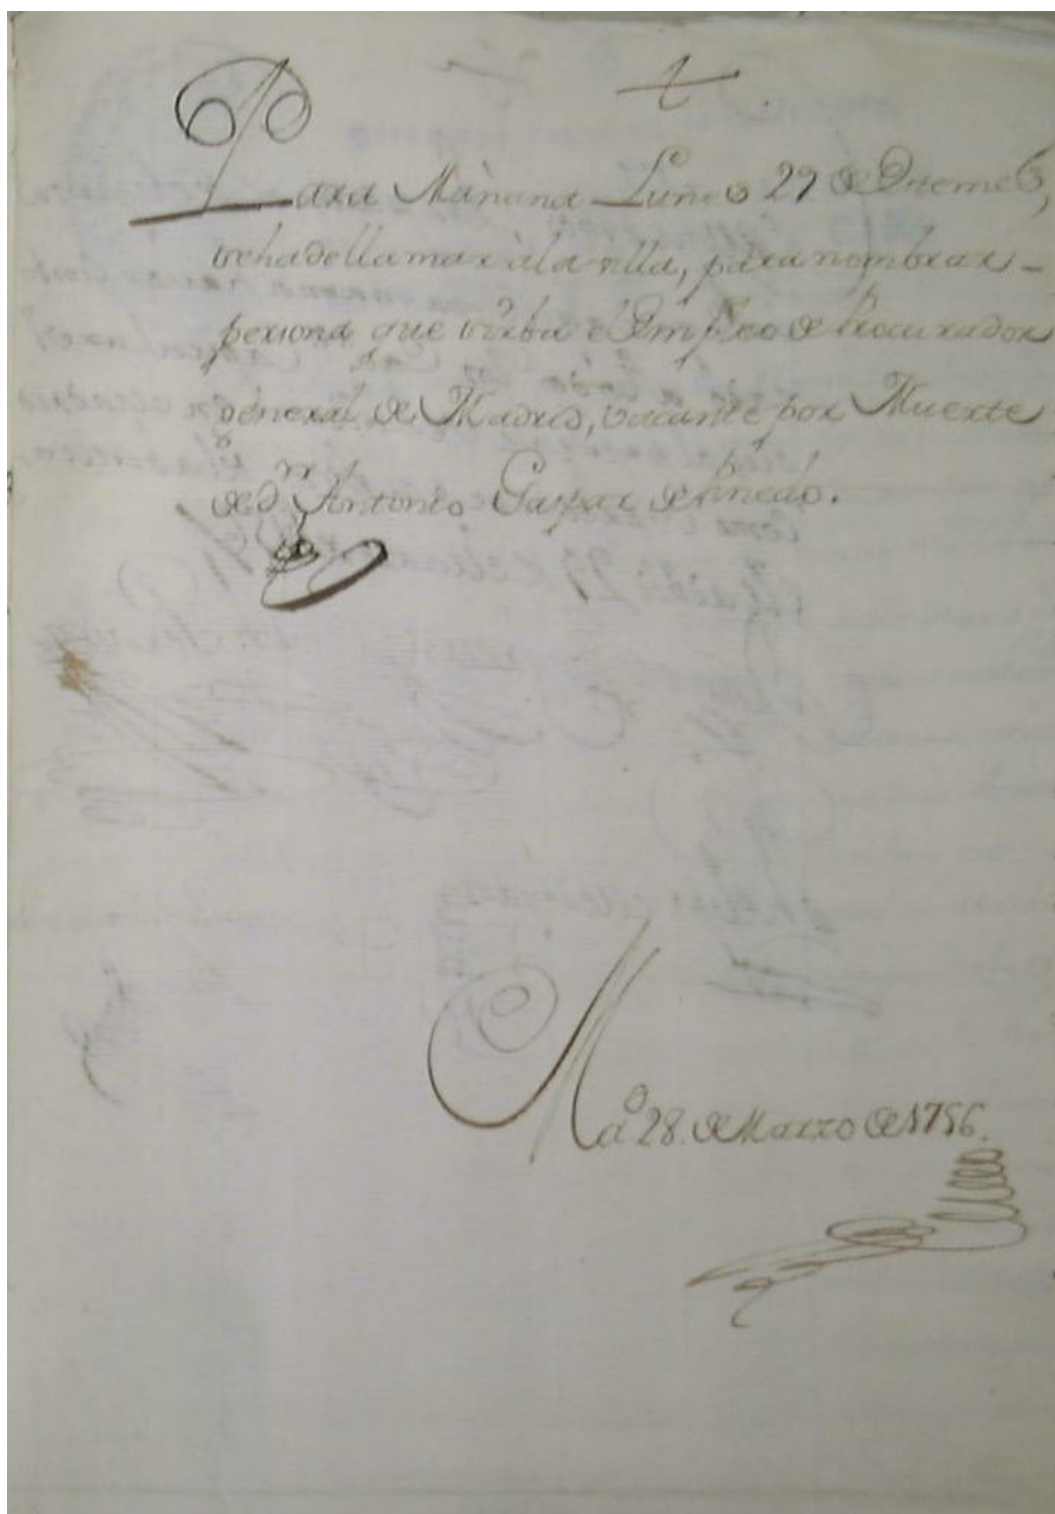 Para Mañana Lunes 29 de
se ha de llamar à la villa, para nombrar
persona que sirba el Empleo de Procurador
General de Madrid, vacante por Muerte
de Dn Antonio Gaspar de Pinedo.
Mad 28 de Marzo de 1756.